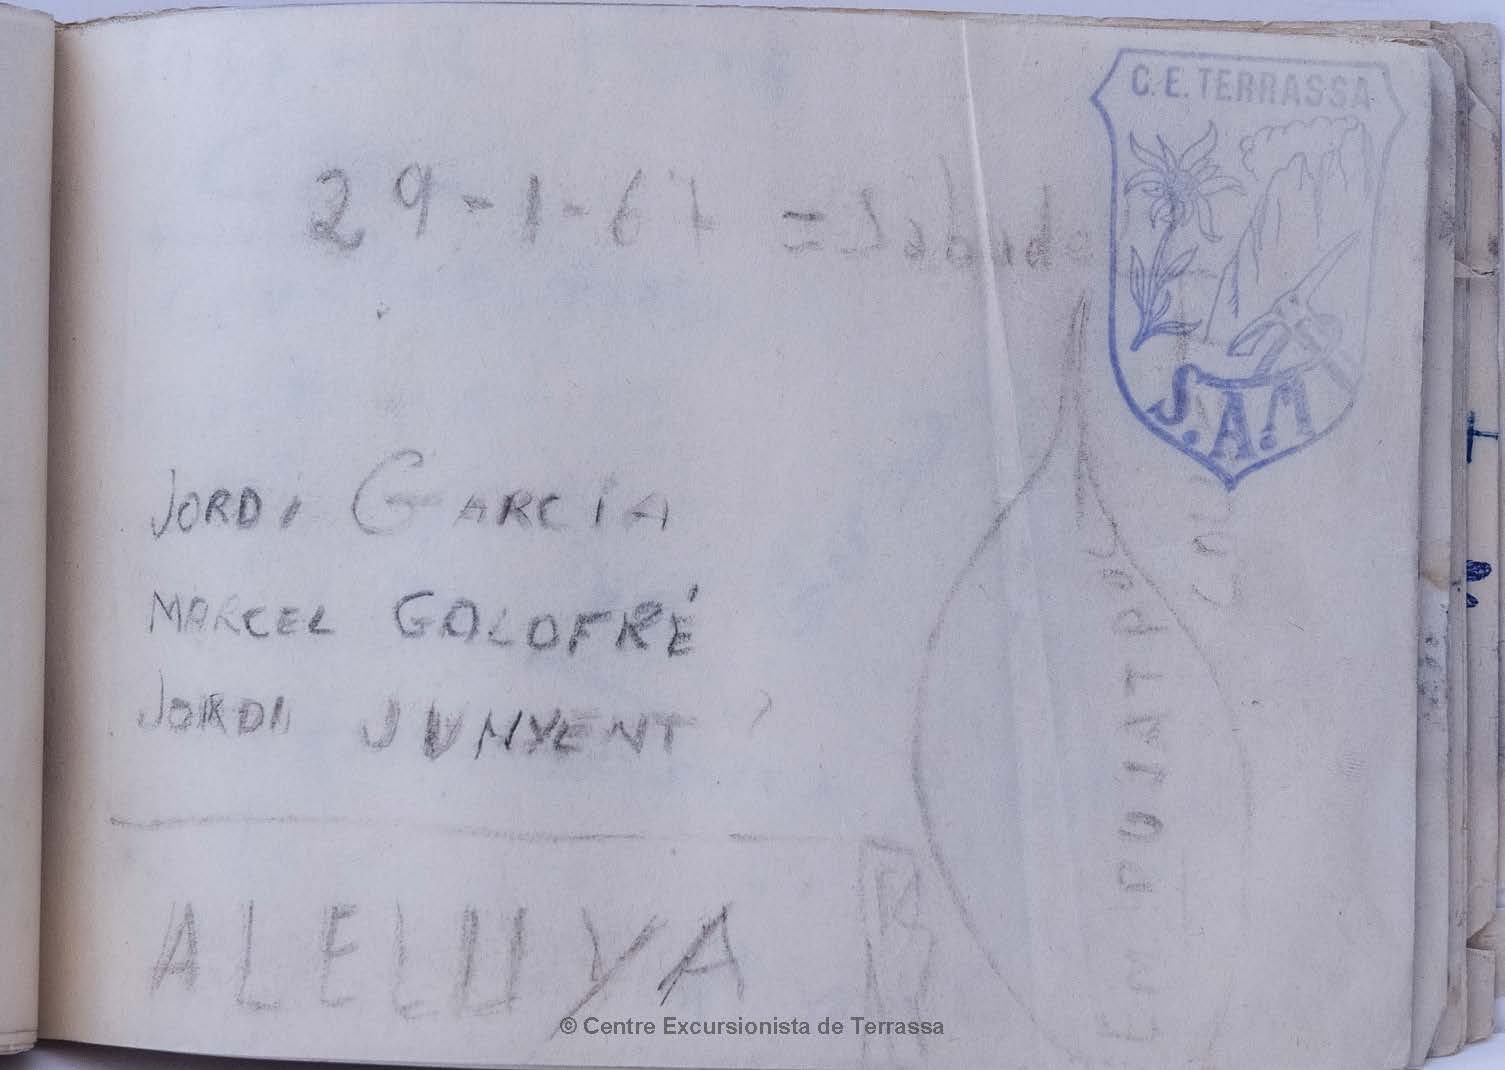 C. E. TERRASSA
29-1-67 =
S.A.M
JORDI GARCIA
MARCEL GOLOFRÉ
JORDI JUNYENT
ALELUYA
EM PUJAT PUL
© Centre Excursionista de Terrassa